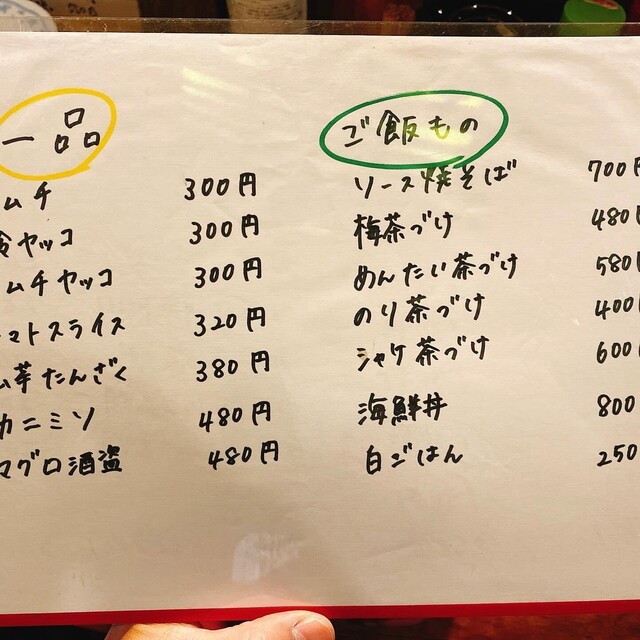 一品
ムチ 300円
ヤッコ 300円
ムチヤッコ 300円
マトスライス 320円
芋たんざく 380円
カニミソ 480円
マグロ酒盗 480円
ご飯もの
ソース焼そば 700円
梅茶づけ 480
めんたい茶づけ 580
のり茶づけ 400
シャケ茶づけ 600
海鮮丼 800
白ごはん 250